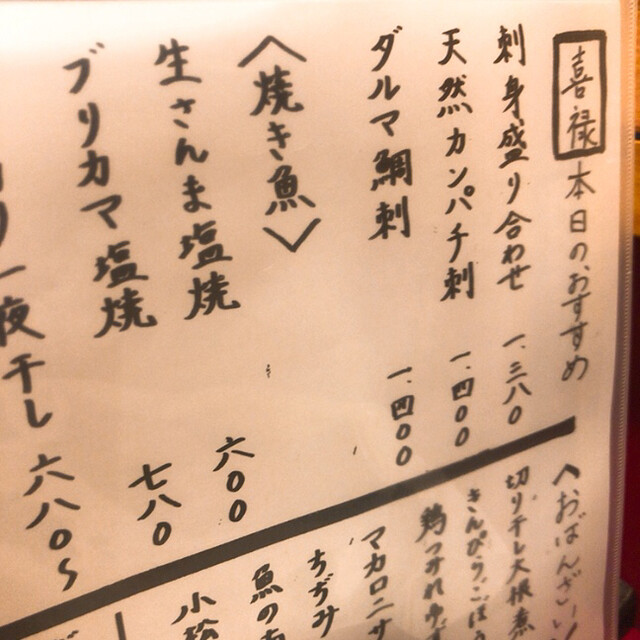 喜禄 本日のおすすめ
刺身盛り合わせ 一.三八〇
天然カンパチ刺 一.四〇〇
ダルマ鯛刺 一.四〇〇
〈焼き魚〉
生さんま塩焼 六〇〇
ブリカマ塩焼 七八〇
一夜干し 六八〇〜
〈おばんざい
切り干し大根煮
きんぴらごぼう
鶏つみれ
マカロニサ
ちぢみ
魚の
小松